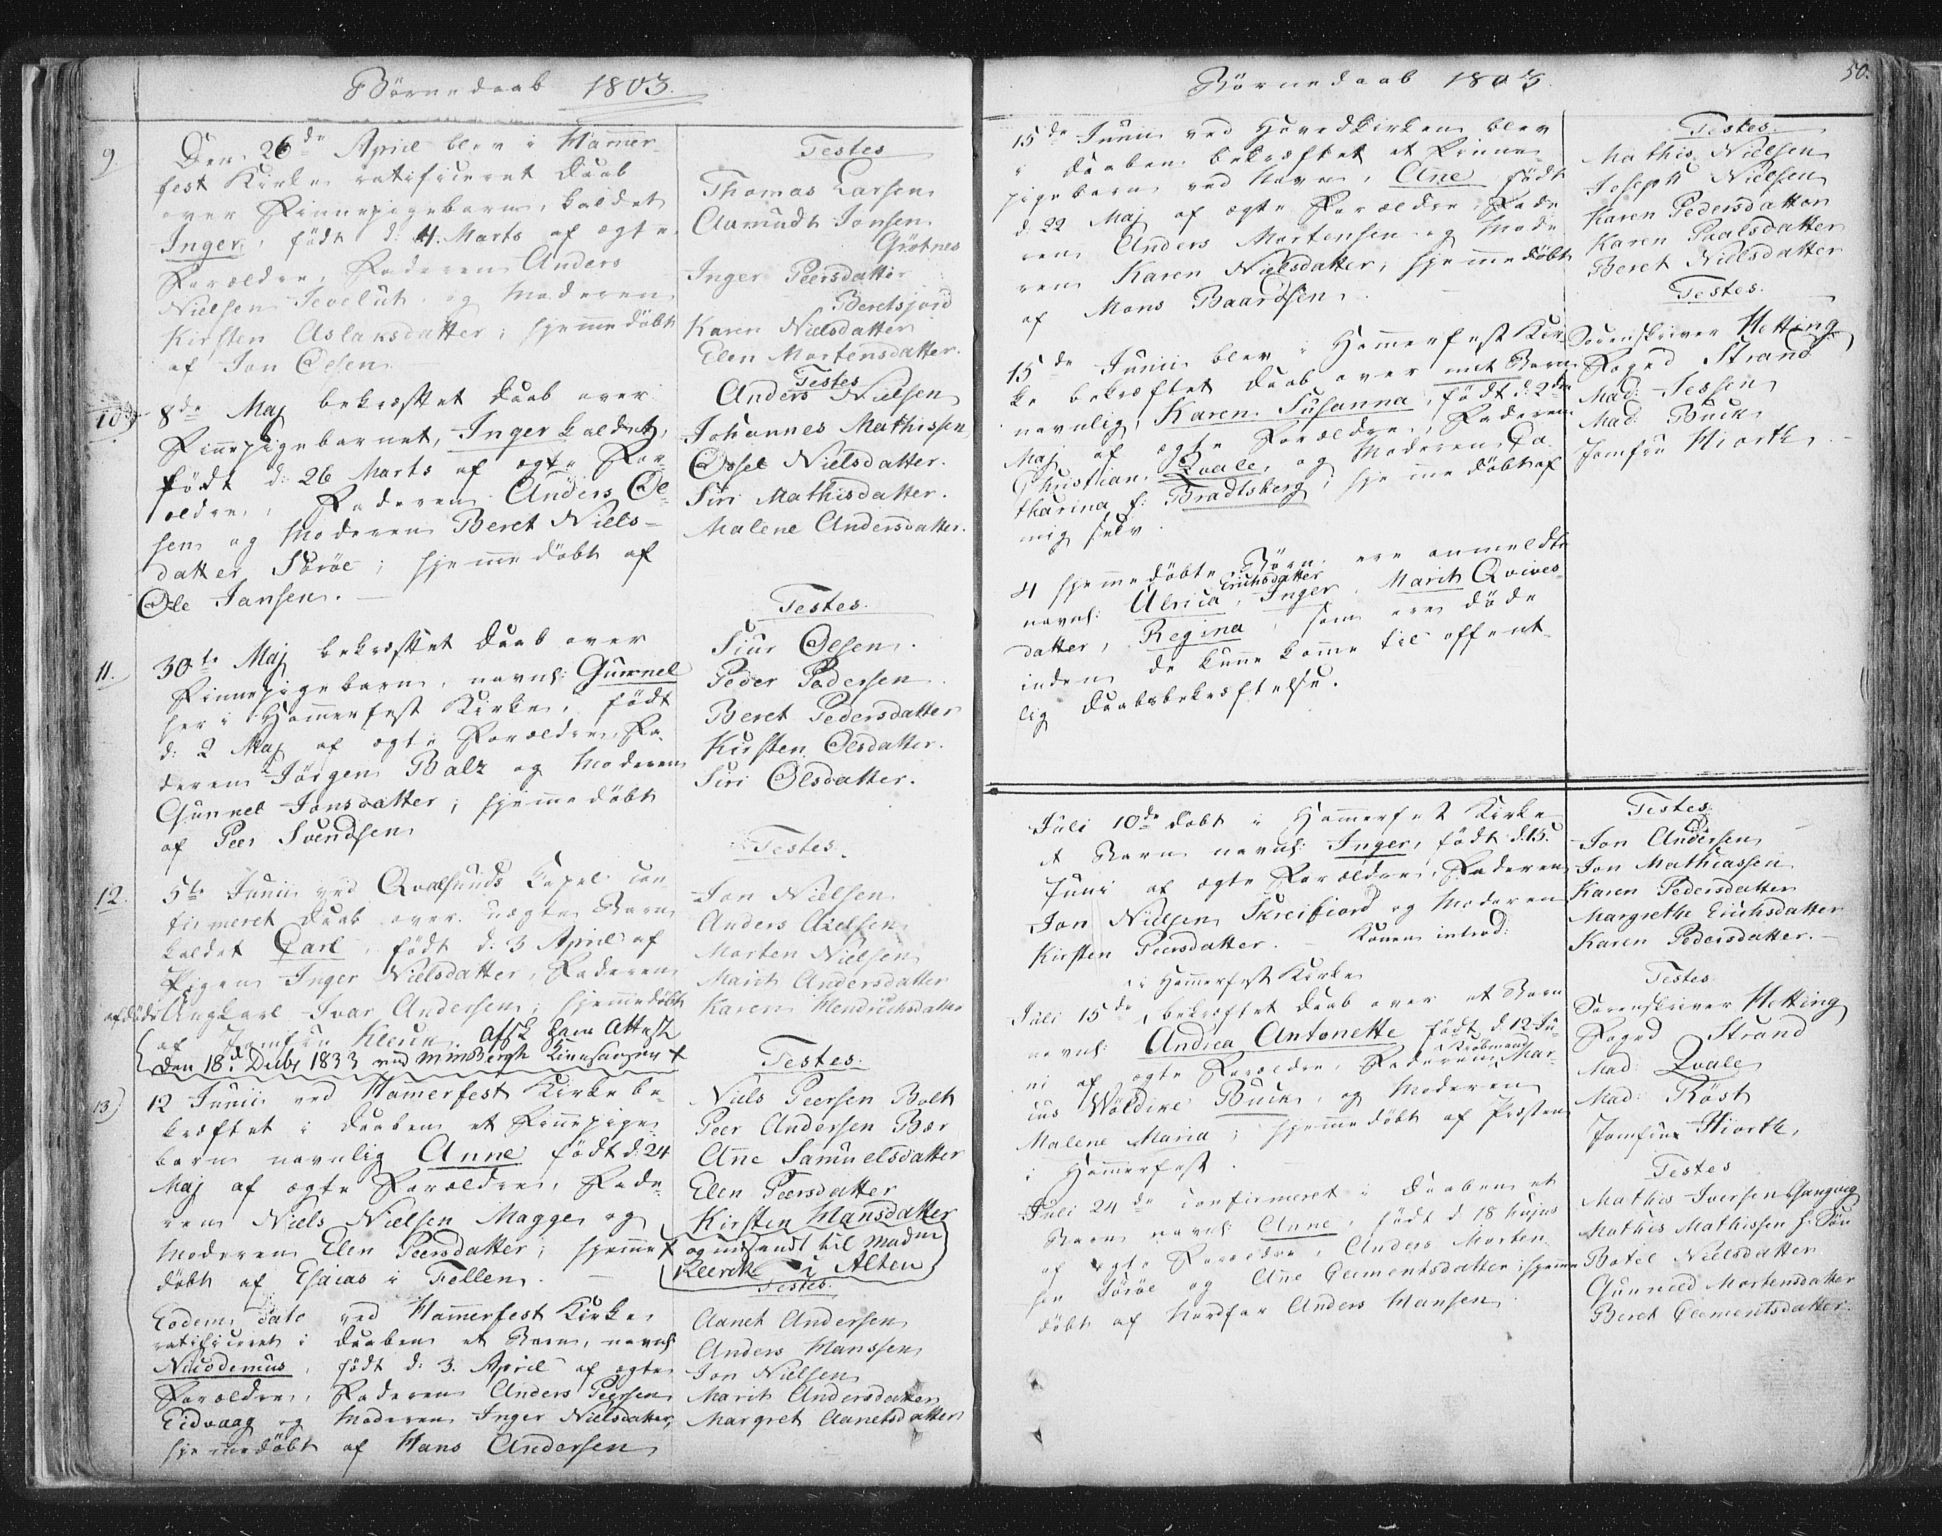 Börnedaab 1803.
9
Den 26de April blev i Hammer-
fest Kirke ratificeret Daab
over Finnepigebarn, kaldet
Inger, født d: 4. Marts af ægte
Forældre, Faderen Anders
Nielsen Jevelut og Moderen
Kirsten Aslaksdatter; hjemmedøbt
af Jon Olsen
Testes
Thomas Larsen
Aamudt Jonsen
Grötnes
Inger Peersdatter
Beretsjord
Karen Nielsdatter
Elen Mortensdatter.
10
8de Maj bekræftet Daab over
Finnepigebarnet, Inger kaldet,
født d: 26 Marts af ægte For-
ældre, Faderen Anders Ol-
sen og Moderen Beret Niels-
datter Söröe; hjemmedøbt af
Ole Jansen.
Testes
Anders Nielsen
Johannes Mathissen
Ossel Nielsdatter.
Siri Mathisdatter.
Malene Andersdatter.
11.
30te Maj bekræftet Daab over
Finnepigebarn, navnl: Gunnel
her i Hammerfest Kirke, født
d. 2 Maj af ægte Forældre, Fa-
deren Jörgen Balz og Moderen
Gunnel Jonsdatter; hjemmedøbt
af Peer Svendsen
Testes.
Siur Olsen.
Peder Pedersen
Beret Pedersdatter
Kirsten Olsdatter.
Siri Olsdatter.
12.
5te Junii ved Qvalsunds Capel con-
firmeret Daab over uægte Barn
kaldet Carl, født d. 3 April af
Pigen Inger Nielsdatter, Faderen
afdöde Ungkarl Ivar Andersen; hjemmedøbt
af Jomfru Klerck.
Den 18d. Decbr 1833 ved
Testes.
Jon Nielsen
Anders Axelsen
Morten Nielsen
Marith Andersdatter
Karen Hendrichsdatter
13)
12 Junii ved Hamerfest Kirke be-
kræftet i Daaben et Finnepige-
barn navnlig Anne født d: 24
Maj af ægte Forældre, Fade-
ren Niels Nielsen Magge og
Moderen Elen Peersdatter; hjemme-
døbt af Esaias i Fellen.
Testes.
Niels Peersen Bolt
Peer Andersen Bær
Ane Samuelsdatter
Elen Peersdatter
Kirsten Hansdatter
og udsendt til Madme
Klerck i Alten
Eodem dato ved Hammerfest Kirke
ratificeret i Daaben et Barn, navnl:
Nicodemus, født d: 3. April af ægte
Forældre, Faderen Anders Peersen
Eidvaag og Moderen Inger Nielsdatter,
hjemmedøbt af Hans Andersen
Testes.
Aanet Andersen
Anders Hanssen
Jon Nielsen
Marith Andersdatter
Margret Aanetsdatter
Börnedaab 1803.
50.
15de Junii ved Hovedkirken blev
i Daaben bekræftet et Finne-
pigebarn ved Navn, Ane født
d. 22 Maj af ægte Forældre, Fade-
ren Anders Mortensen og Mode-
ren Karen Nielsdatter; hjemmedøbt
af Mons Baardsen
Testes.
Mathis Nielsen
Joseph Nielsen
Karen Pedersdatter
Karen Paalsdatter
Beret Nielsdatter
15de Junii blev i Hamerfest Kir-
ke bekræftet Daab over mit Barn
navnlig, Karen Susanna, født d. 2den
Maj af ægte Forældre, Faderen
Christian Qvale, og Moderen Ca-
tharina f: Bradtsberg; hjemmedøbt af
mig selv.
Testes.
Sorenskriver Hetting
Foged Strand
Mad: Jessen
Mad: Buck
Jomfru Hiorth
4 hjemmedøbte Börn ere anmeldte
Erichsdatter
navnl: Ulrica, Inger, Marith Qvives-
datter, Regina, som ere døde
inden de kunne komme til offent-
lig Daabsbekræftelse.
Juli 10de døbt i Hammerfest Kirke
et Barn navnl: Inger, født d. 15.
Juni af ægte Forældre, Faderen
Jon Nielsen Skreifiord og Moderen
Kirsten Peersdatter. - Konen introd:
Testes
Jon Andersen
Jon Mathiassen
Karen Pedersdatter
Margrethe Erichsdatter
Karen Pedersdatter.
i Hamerfest Kirke
Juli 15de bekræftet Daab over et Barn
navnl: Andrea Antonette født d. 12 Ju-
Kiöbmand
ni af ægte Forældre, Faderen Mar-
cus Wöldike Buck, og Moderen
Malene Maria; hjemmedøbt af Præsten
i Hamerfest.
Testes
Sorenskriver Hetting
Foged Strand
Mad: Qvale
Mad: Röst
Jomfrue Hiorth,
Juli 24de confirmeret i Daaben et
Barn navnl: Anne, født d 18 hujus
af ægte Forældre, Anders Morten-
sen Söröe og Ane Clementsdatter; hjemme-
døbt af Nordfar Anders Hansen
Testes
Mathis Iversen Gangvig
Mathis Mathissen h: Sön
Botel Nielsdatter
Gunnild Mortensdatter
Beret Clementsdatter.